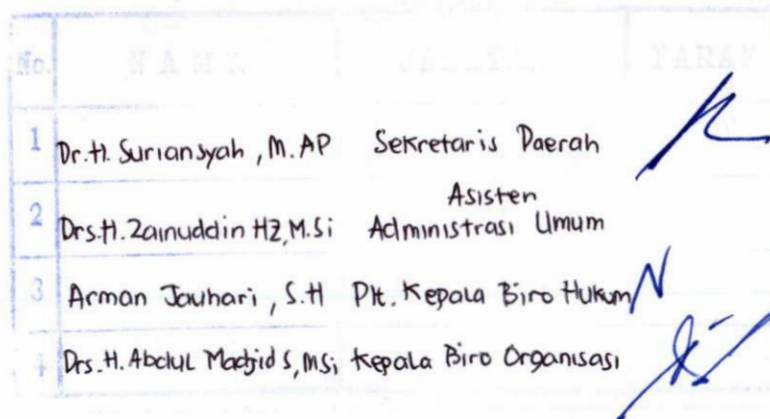 No. NAMA PARAF
1 Dr. H. Suriansyah, M.AP Sekretaris Daerah
Asisten
2 Drs. H. Zainuddin HZ, M.Si Administrasi Umum
3 Arman Jauhari, S.H Plt. Kepala Biro Hukum
4 Drs. H. Abdul Madjid S, MSi Kepala Biro Organisasi